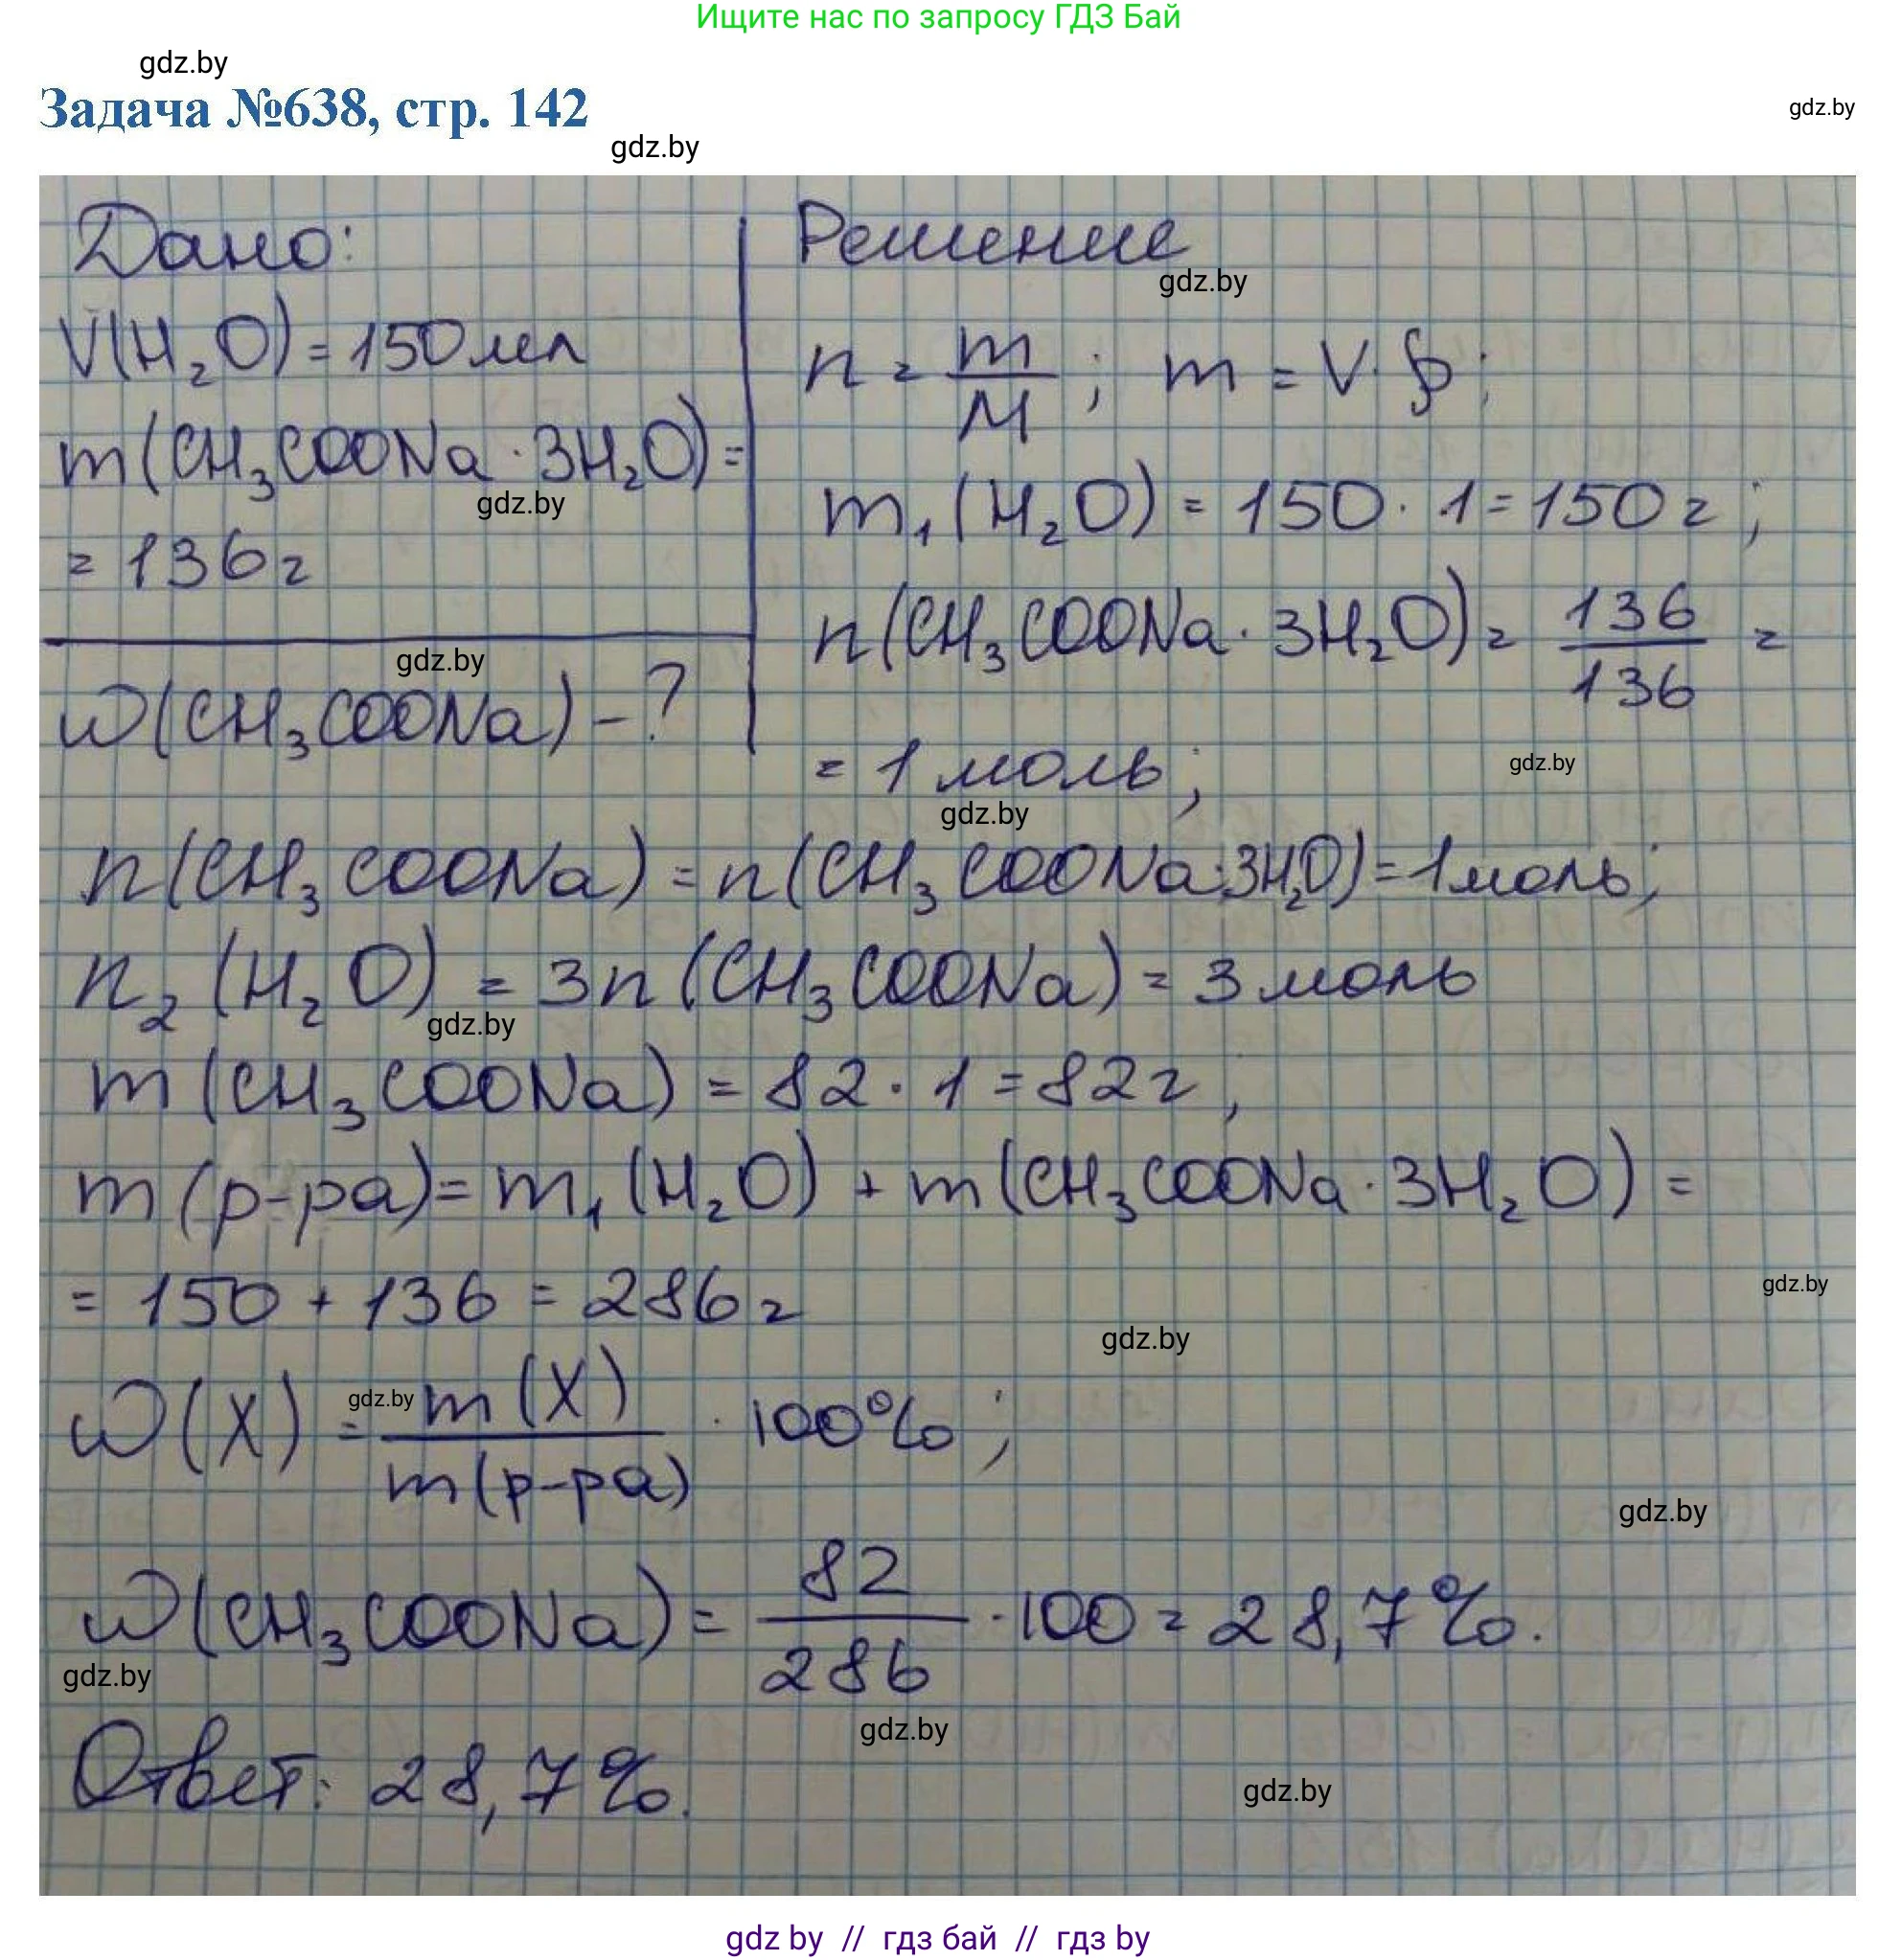 Ищите нас по запросу ГДЗ Бай
gdz.by
Задача №638, стр. 142
gdz.by
gdz.by
Дано:
V(H₂O) = 150 мл
m(CH₃COONa · 3H₂O) =
gdz.by
= 136 г
gdz.by
ω(CH₃COONa) - ?
Решение
gdz.by
n = m/M ; m = V · ρ ;
m₁(H₂O) = 150 · 1 = 150 г ;
n(CH₃COONa · 3H₂O) = 136/136 =
= 1 моль ;
gdz.by
gdz.by
n(CH₃COONa) = n(CH₃COONa·3H₂O) = 1 моль ;
n₂(H₂O) = 3n(CH₃COONa) = 3 моль
gdz.by
m(CH₃COONa) = 82 · 1 = 82 г ;
m(р-ра) = m₁(H₂O) + m(CH₃COONa · 3H₂O) =
= 150 + 136 = 286 г
gdz.by
gdz.by
ω(X) = m(X)/m(р-ра) · 100% ;
gdz.by
gdz.by
ω(CH₃COONa) = 82/286 · 100 = 28,7 %.
gdz.by
gdz.by
Ответ: 28,7 %.
gdz.by
gdz by // гдз бай // гдз by